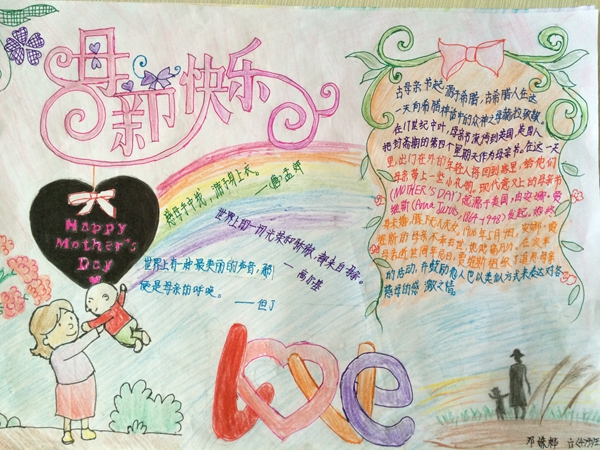 母亲节快乐
Happy
Mother's
Day
慈母手中线，游子身上衣。
——唐·孟郊
世界上的一切光荣和骄傲，都来自母亲。
——高尔基
世界上有一种最美丽的声音，那
便是母亲的呼唤。 ——但丁
古母亲节起源于希腊，古希腊人在这
一天向希腊神话中的众神之母赫拉致敬。
在17世纪中叶，母亲节流传到英国，英国人
把封斋期的第四个星期天作为母亲节。在这一天
里，出门在外的年轻人将回到家里，给他们
母亲带上一些小礼物。现代意义上的母亲节
(MOTHER'S DAY)起源于美国，由安娜·贾
维斯(Anna Jarvis, 1864-1948)发起，她终
1906年5月9日，安娜·贾
的启动，并鼓励他人也以类似方式来表达对各
慈母的感激之情。
Love